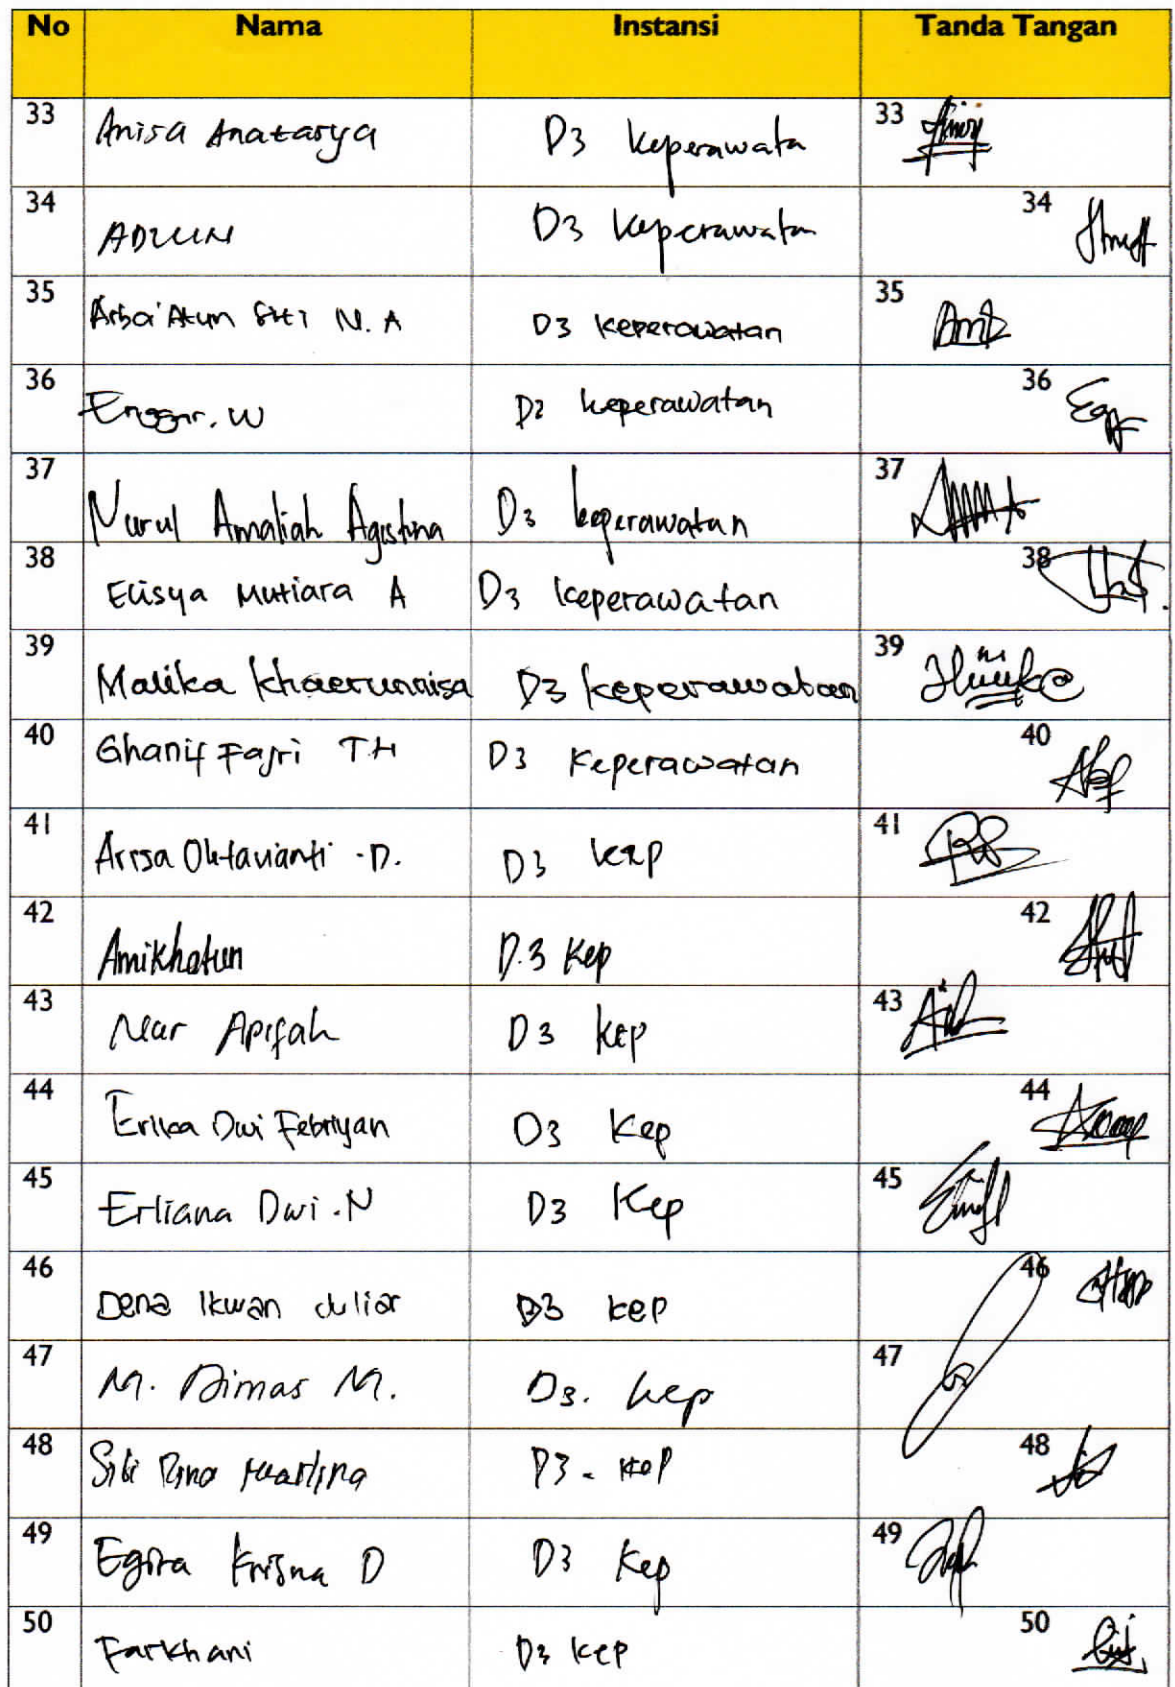 No Nama Instansi Tanda Tangan
33 Anisa Anatasya D3 Keperawata 33
34 D3 Keperawatan 34
35 Arba'Atun Siti N.A D3 Keperawatan 35
36 Enggar. W D3 keperawatan 36
37 Nurul Amaliah Agustina D3 keperawatan 37
38 Elisya Mutiara A D3 keperawatan 38
39 Malika Khaerunnisa D3 keperawatan 39
40 Ghanif Fajri T.H D3 Keperawatan 40
41 Arisa Oktavianti .D. D3 kep 41
42 Amikhatun D.3 Kep 42
43 Nur Apifah D3 kep 43
44 Erika Dwi Febriyan D3 Kep 44
45 Erliana Dwi .N D3 Kep 45
46 Dena Ikwan Juliar D3 kep 46
47 M. Dimas M. D3. kep 47
48 Siti D3. kep 48
49 Krisna D D3 Kep 49
50 Farkhani D3 kep 50